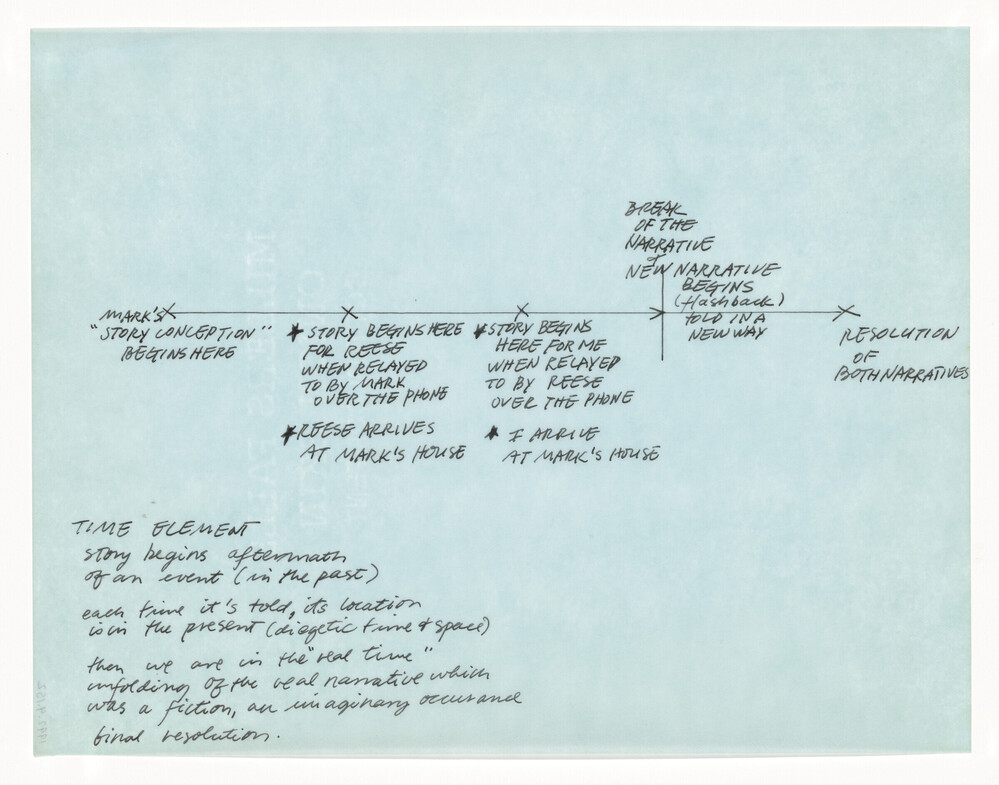 BREAK
OF THE
NARRATIVE
&
NEW NARRATIVE
BEGINS
(flashback)
TOLD IN A
NEW WAY
MARK'S
"STORY CONCEPTION"
BEGINS HERE
★ STORY BEGINS HERE
FOR REESE
WHEN RELAYED
TO BY MARK
OVER THE PHONE
★ REESE ARRIVES
AT MARK'S HOUSE
★ STORY BEGINS
HERE FOR ME
WHEN RELAYED
TO BY REESE
OVER THE PHONE
★ I ARRIVE
AT MARK'S HOUSE
RESOLUTION
OF
BOTH NARRATIVES
TIME ELEMENT
story begins aftermath
of an event (in the past)
each time it's told, its location
is in the present (diegetic time & space)
then we are in the "real time"
unfolding of the real narrative which
was a fiction, an imaginary occurance
final resolution.